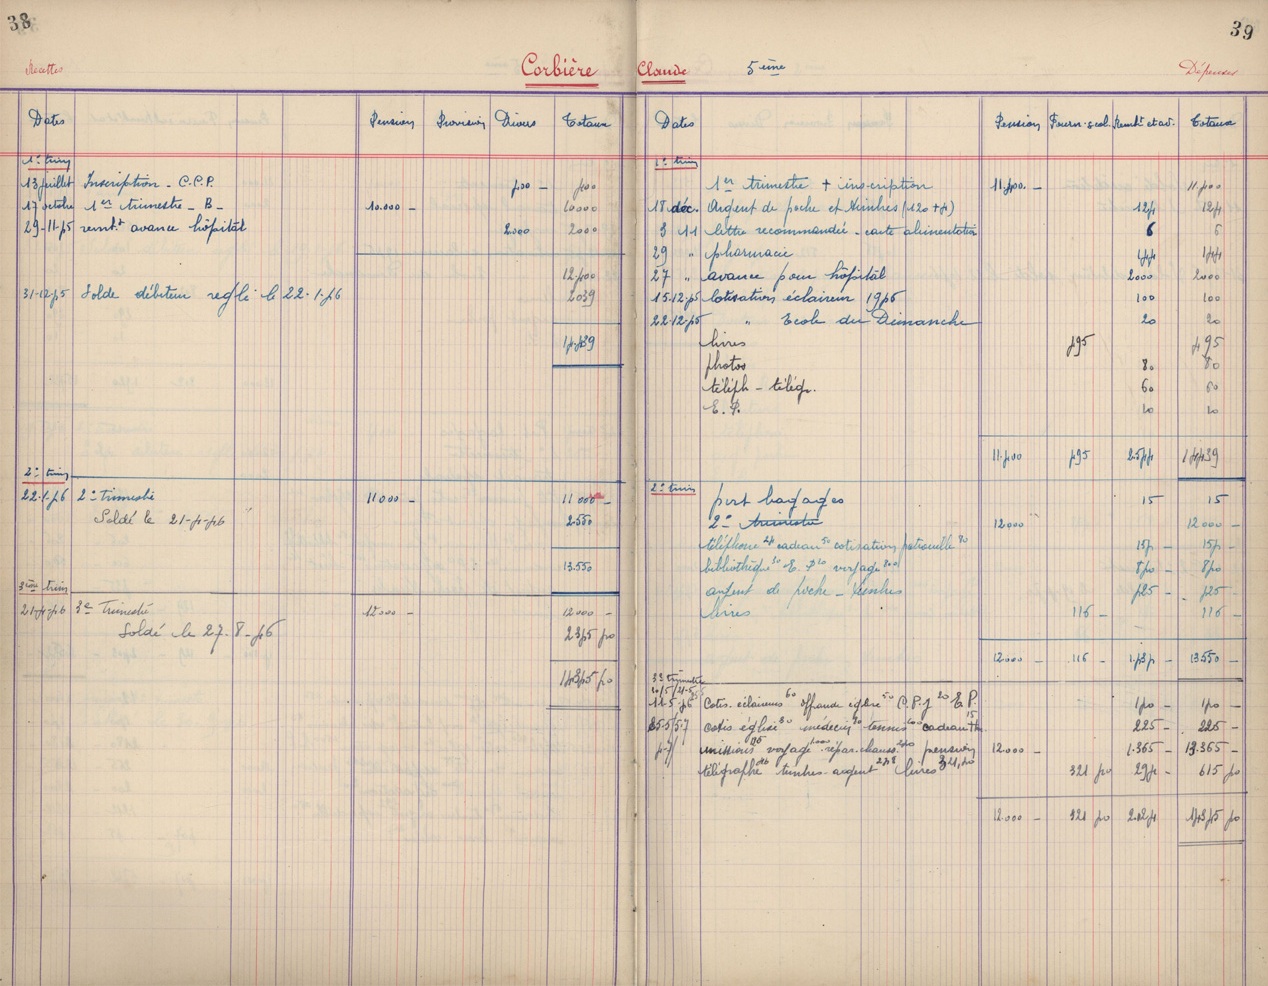 38
39
Recettes
Corbière Claude 5ème
Dépenses
Dates Pension Provision Divers Totaux
1er trim
13 juillet Inscription - C.C.P. 500 - 500
17 octobre 1er trimestre - B - 10.000 - 10000
29-11-45 rembt avance hôpital 2.000 2000
12.500
31-12-45 Solde débiteur reglé le 22-1-46 2039
14.539
2e trim
22-1-46 2e trimestre 11000 - 11000 -
Soldé le 21-4-46 2.550
13.550
3ème trim
21-4-46 3e Trimestre 12000 - 12000 -
Soldé le 27-8-46 2345 50
14345 50
Dates Pension Fourn. scol. Rembt et av. Totaux
1er trim
1er trimestre + inscription 11.500. - 11.500
18 déc. Argent de poche et timbres (120+4) 124 124
3 11 lettre recommandée - carte alimentation 6 6
29 " pharmacie 44 44
27 " avance pour hôpital 2000 2000
15.12.45 cotisations éclaireur 1946 100 100
22.12.45 " Ecole du Dimanche 20 20
livres 595 595
photos 80 80
téléph - télégr. 60 60
E.P. 10 10
11.500 595 2.444 14.539
2e trim
port bagages 15 15
2e trimestre 12000 12000 -
téléphone 24 cadeau 50 cotisation patrouille 80 154 - 154 -
bibliothèque 30 E.P 10 voyage 800 840 - 840
argent de poche - timbres 425 - 425 -
livres 116 - 116 -
12000 - 116 - 1.434 - 13550 -
3e trimestre
11-5-46 Cotis. éclaireurs 60 offrande église 50 C.P.J 20 E.P. 140 - 140 -
cotis église médecin tennis 60 cadeau 15 225 - 225 -
missions voyage répar. chauss. pension 12.000 - 1.365 - 13.365 -
télégraphe 16 timbres argent 278 livres 321,50 321 50 294 - 615 50
12.000 - 321 50 2.024 14345 50